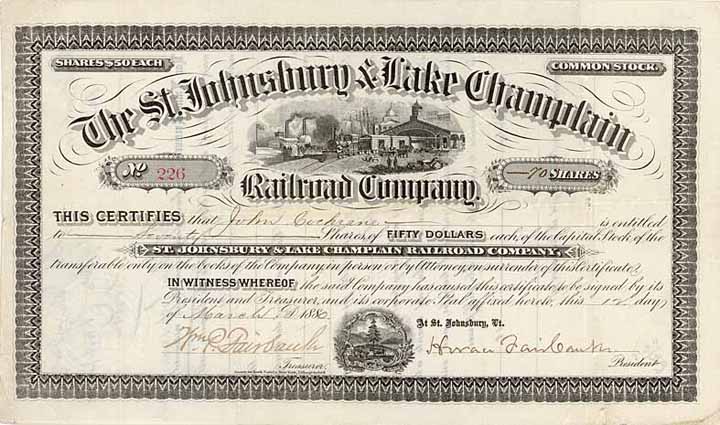 SHARES $50 EACH
COMMON STOCK.
The St. Johnsbury & Lake Champlain
No 226
70 SHARES
Railroad Company.
THIS CERTIFIES that John Cochrane is entitled
to Seventy Shares of FIFTY DOLLARS each of the Capital Stock of the
ST. JOHNSBURY & LAKE CHAMPLAIN RAILROAD COMPANY,
transferable only on the books of the Company in person or by Attorney, on surrender of this Certificate.
IN WITNESS WHEREOF the said Company has caused this certificate to be signed by its
President and Treasurer, and its corporate Seal affixed hereto, this 12 day
of March 188
At St. Johnsbury, Vt.
Wm P. Fairbanks
Horace Fairbanks
Treasurer.
President.